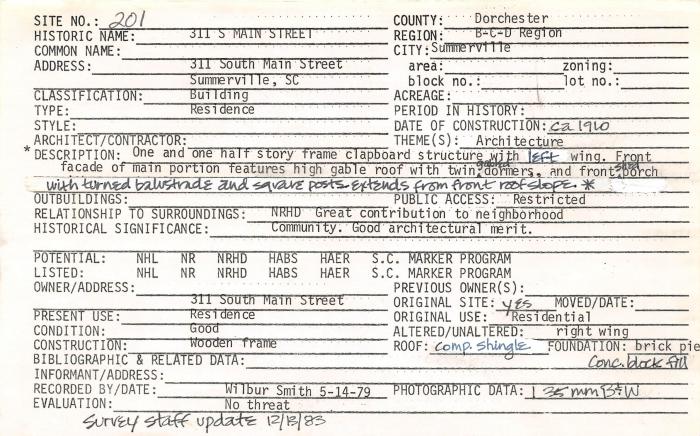 SITE NO.: 201 COUNTY: Dorchester
HISTORIC NAME: 311 S MAIN STREET REGION: B-C-D Region
COMMON NAME: CITY: Summerville
ADDRESS: 311 South Main Street area: zoning:
Summerville, SC block no.: lot no.:
CLASSIFICATION: Building ACREAGE:
TYPE: Residence PERIOD IN HISTORY:
STYLE: DATE OF CONSTRUCTION: ca 1910
ARCHITECT/CONTRACTOR: THEME(S): Architecture
* DESCRIPTION: One and one half story frame clapboard structure with left wing. Front
facade of main portion features high gable roof with twin gabled dormers, and front shed porch
with turned balustrade and square posts extends from front roof slope. *
OUTBUILDINGS: PUBLIC ACCESS: Restricted
RELATIONSHIP TO SURROUNDINGS: NRHD Great contribution to neighborhood
HISTORICAL SIGNIFICANCE: Community. Good architectural merit.
POTENTIAL: NHL NR NRHD HABS HAER S.C. MARKER PROGRAM
LISTED: NHL NR NRHD HABS HAER S.C. MARKER PROGRAM
OWNER/ADDRESS: PREVIOUS OWNER(S):
311 South Main Street ORIGINAL SITE: yes MOVED/DATE:
PRESENT USE: Residence ORIGINAL USE: Residential
CONDITION: Good ALTERED/UNALTERED: right wing
CONSTRUCTION: Wooden frame ROOF: comp. shingle FOUNDATION: brick pie
BIBLIOGRAPHIC & RELATED DATA: Conc. block fill
INFORMANT/ADDRESS:
RECORDED BY/DATE: Wilbur Smith 5-14-79 PHOTOGRAPHIC DATA: 1 35mm B+W
EVALUATION: No threat
Survey staff update 12/13/83